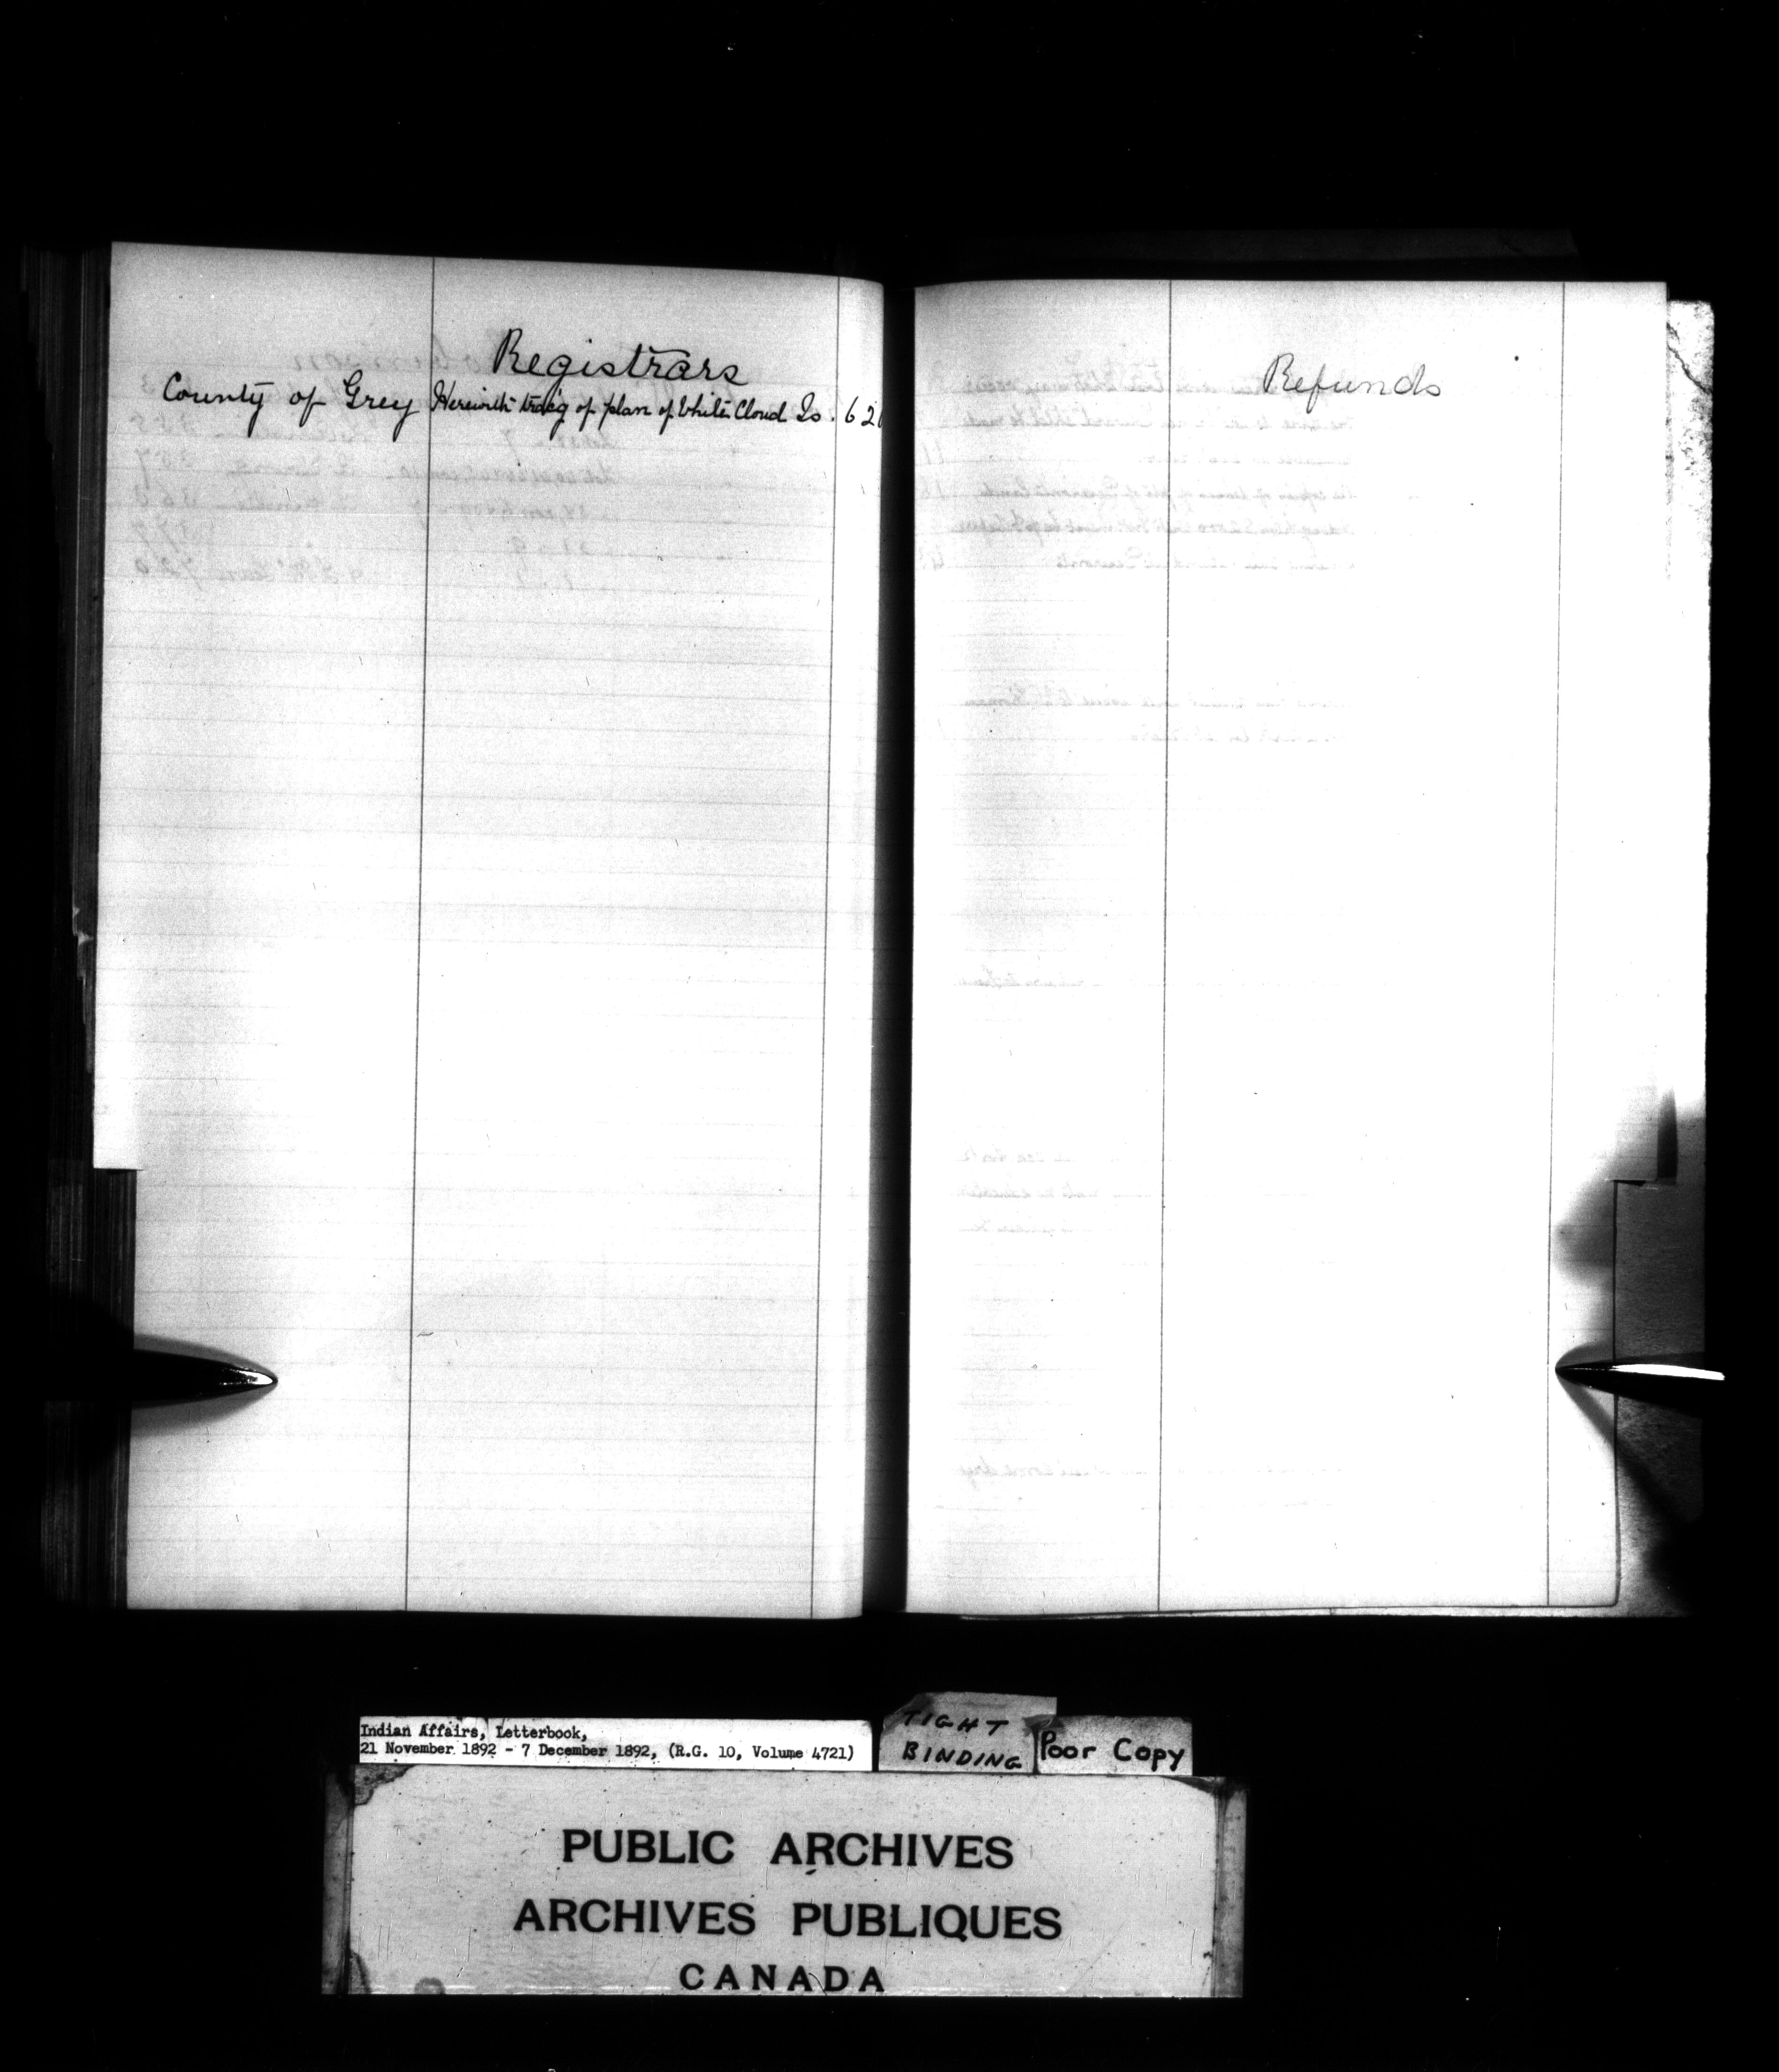 Registrars
County of Grey Herewith trac'g of plan of White Cloud Is. 62
Refunds
Indian Affairs, Letterbook,
21 November 1892 - 7 December 1892, (R.G. 10, Volume 4721)
TIGHT
BINDING
Poor Copy
PUBLIC ARCHIVES
ARCHIVES PUBLIQUES
CANADA